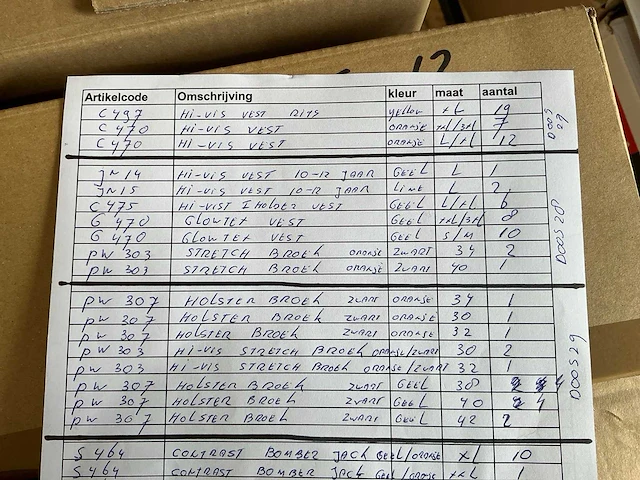 Artikelcode Omschrijving kleur maat aantal
C 497 Hi-Vis VEST RITS yellow XL 19
C 470 Hi-Vis VEST ORANJE XXL/3XL 7
C 470 Hi-Vis VEST ORANJE L/XL 12
JN 14 Hi-Vis VEST 10-12 JAAR GEEL L 1
JN 15 Hi-Vis VEST 10-12 JAAR LIME L 2
C 475 Hi-VIST HOLDER VEST GEEL L/XL 6
G 470 GLOWTEX VEST GEEL XXL/3XL 8
G 470 GLOWTEX VEST GEEL S/M 10
PW 303 STRETCH BROEK ORANJE ZWART 34 2
PW 303 STRETCH BROEK ORANJE ZWART 40 1
DOOS 28
PW 307 HOLSTER BROEK ZWART ORANJE 34 1
PW 307 HOLSTER BROEK ZWART ORANJE 30 1
PW 307 HOLSTER BROEK ZWART ORANJE 32 1
PW 303 Hi-Vis STRETCH BROEK ORANJE/ZWART 30 2
PW 303 Hi-Vis STRETCH BROEK ORANJE/ZWART 32 1
PW 307 HOLSTER BROEK ZWART GEEL 38
PW 307 HOLSTER BROEK ZWART GEEL 40 4
PW 307 HOLSTER BROEK ZWART GEEL 42 2
DOOS 29
S 464 CONTRAST BOMBER JACK GEEL/ORANJE XL 10
S 464 CONTRAST BOMBER JACK GEEL/ORANJE XXL 1